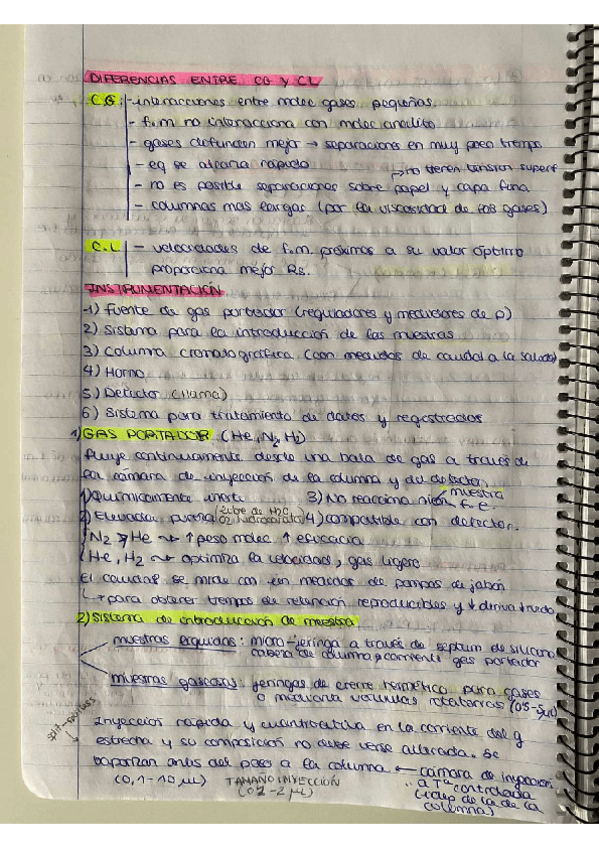 DIFERENCIAS ENTRE CG Y CL
CG: - interacciones entre molec gases pequeñas.
- f.m no interacciona con molec analito
- gases difunden mejor → separaciones en muy poco tiempo
- eq se alcanza rápido
→ no tienen tension superf
- no es posible separaciones sobre papel y capa fina
- columnas mas largas (por la viscosidad de los gases)
C.L - velocidades de f.m. próximos a su valor óptimo
proporciona mejor Rs.
INSTRUMENTACIÓN
1) Fuente de gas portador (reguladores y medidores de p)
2) Sistema para la introducción de las muestras
3) Columna cromatográfica (con medidas de caudal a la salida)
4) Horno
5) Detector (llama)
6) Sistema para tratamiento de datos y registrados
1) GAS PORTADOR (He, N2, H2)
fluye continuamente desde una bala de gas a través de
la cámara de inyección de la columna y du detector.
1) Químicamente inerte 3) No reacciona ni con muestra
f.e.
2) Elevada pureza (libre de H2O, O2 hidrocarb) 4) compatible con detector.
N2 > He ↝ ↑ peso molec ↑ eficacia
He, H2 ↝ optimiza la velocidad, gas ligero
El caudal se mide con un medidor de pompas de jabón
↳ para obtener tiempos de retención reproducibles y ↓ deriva ↓ ruido
2) Sistema de introducción de muestra
muestras líquidas: micro-jeringa a través de septum de silicona
cabeza de columna, corriente gas portador
muestras gaseosas: jeringas de cierre hermético para gases
o mediante válvulas rotatorias (0,5-5 µL)
split-splitless
Inyección rápida y cuantitativa en la corriente del g
estrecha y su composición no debe verse alterada. Se
vaporizan antes del paso a la columna ← cámara de inyección
(0,1-10 µL) TAMAÑO INYECCIÓN a Tª controlada
(0,1-2 µL) (indep de la de la
columna)